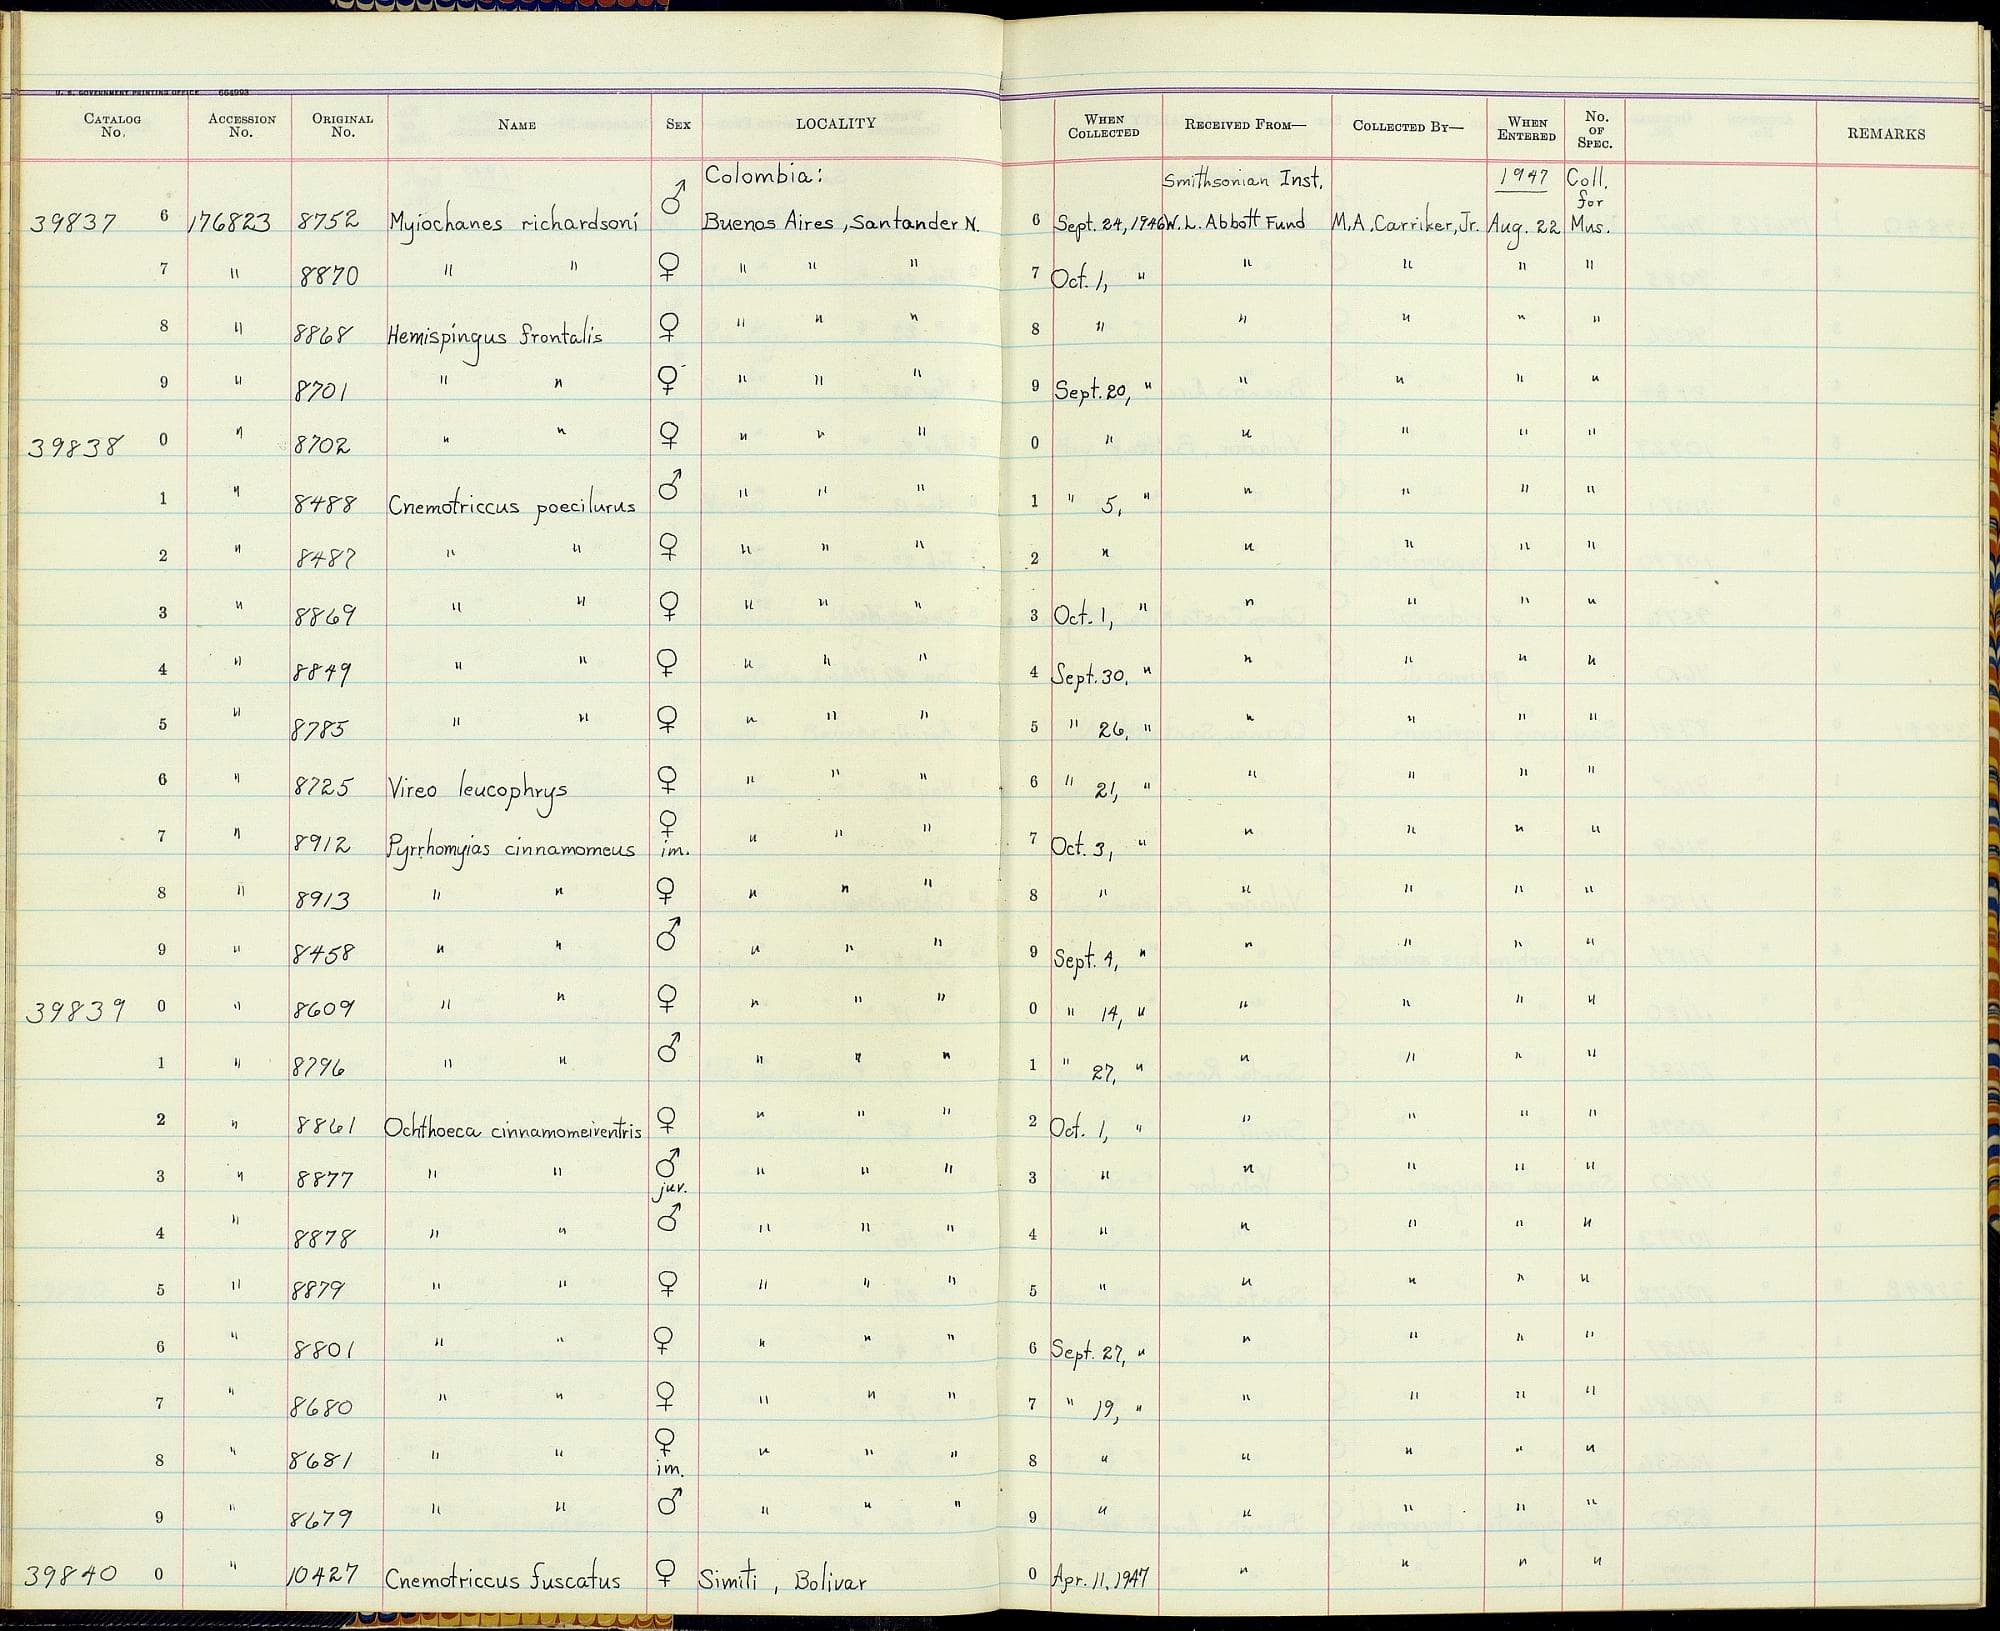 U. S. GOVERNMENT PRINTING OFFICE 664993
CATALOG No. ACCESSION No. ORIGINAL No. NAME SEX LOCALITY WHEN COLLECTED RECEIVED FROM— COLLECTED BY— WHEN ENTERED No. OF SPEC. REMARKS
Colombia: Smithsonian Inst. 1947 Coll. for
39837 6 176823 8752 Myiochanes richardsoni ♂ Buenos Aires, Santander N. 6 Sept. 24, 1946 W. L. Abbott Fund M.A. Carriker, Jr. Aug. 22 Mus.
7 " 8870 " " ♀ " " " 7 Oct. 1, " " " " "
8 " 8868 Hemispingus frontalis ♀ " " " 8 " " " " "
9 " 8701 " " ♀ " " " 9 Sept. 20, " " " " "
39838 0 " 8702 " " ♀ " " " 0 " " " " "
1 " 8488 Cnemotriccus poecilurus ♂ " " " 1 " 5, " " " " "
2 " 8487 " " ♀ " " " 2 " " " " "
3 " 8869 " " ♀ " " " 3 Oct. 1, " " " " "
4 " 8849 " " ♀ " " " 4 Sept. 30, " " " " "
5 " 8785 " " ♀ " " " 5 " 26, " " " " "
6 " 8725 Vireo leucophrys ♀ " " " 6 " 21, " " " " "
7 " 8912 Pyrrhomyias cinnamomeus ♀ im. " " " 7 Oct. 3, " " " " "
8 " 8913 " " ♀ " " " 8 " " " " "
9 " 8458 " " ♂ " " " 9 Sept. 4, " " " " "
39839 0 " 8609 " " ♀ " " " 0 " 14, " " " " "
1 " 8796 " " ♂ " " " 1 " 27, " " " " "
2 " 8861 Ochthoeca cinnamomeiventris ♀ " " " 2 Oct. 1, " " " " "
3 " 8877 " " ♂ juv. " " " 3 " " " " "
4 " 8878 " " ♂ " " " 4 " " " " "
5 " 8879 " " ♀ " " " 5 " " " " "
6 " 8801 " " ♀ " " " 6 Sept. 27, " " " " "
7 " 8680 " " ♀ " " " 7 " 19, " " " " "
8 " 8681 " " ♀ im. " " " 8 " " " " "
9 " 8679 " " ♂ " " " 9 " " " " "
39840 0 " 10427 Cnemotriccus fuscatus ♀ Simiti, Bolivar 0 Apr. 11, 1947 " " " "